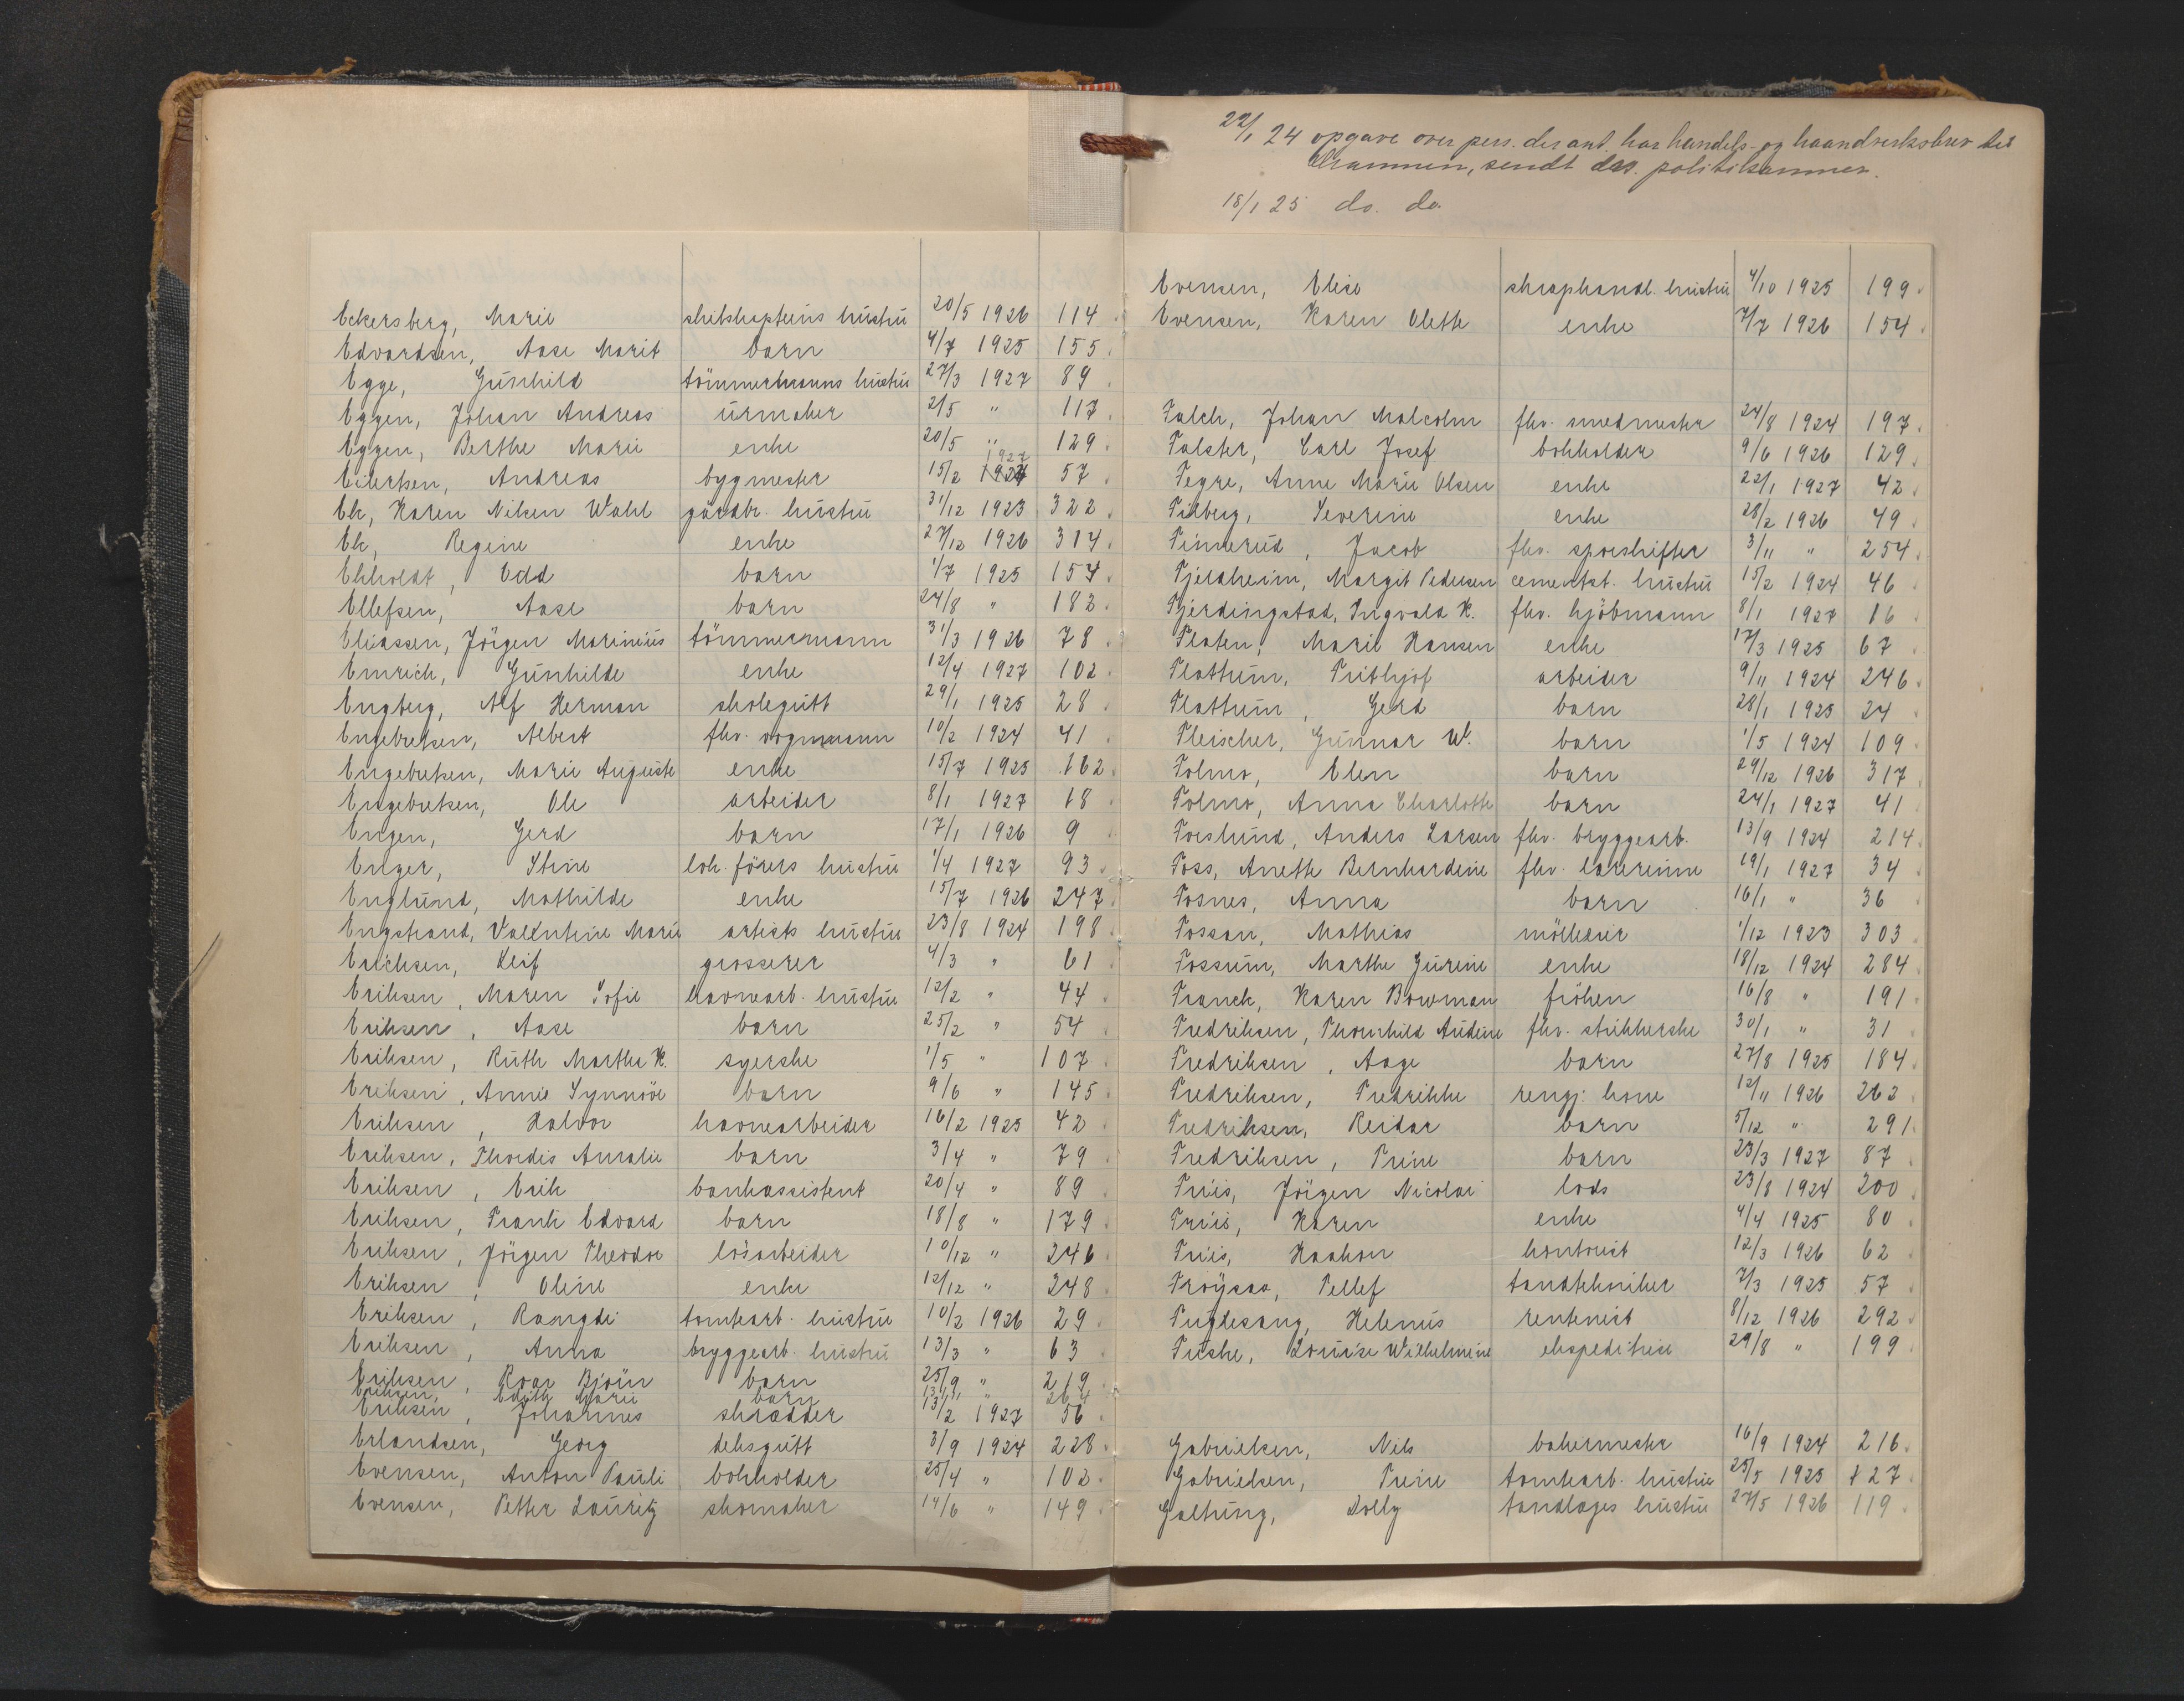 22/1 24 opgave over pers. der ant. har handels- og haandverksbrev til
Drammen, sendt das. politikammer.
18/1 25 do. do.
Eckersberg, Marie skibskapteins hustru 20/5 1926 114
Edvardsen, Aase Marit barn 4/7 1925 155
Egge, Gunhild tömmermanns hustru 27/3 1927 89
Eggen, Johan Andreas urmaker 2/5 " 117
Eggen, Berthe Marie enke 20/5 " 129
Eilertsen, Andreas bygmester 15/2 1927 57
Ek, Karen Nilsen Wahl gårdbr. hustru 31/12 1923 322
Ek, Regine enke 27/12 1926 314
Ekholdt, Odd barn 1/7 1925 154
Ellefsen, Aase barn 24/8 " 182
Eliassen, Jörgen Marinius tömmermann 31/3 1926 78
Emrich, Gunhilde enke 12/4 1927 102
Engberg, Alf Herman skolegutt 29/1 1925 28
Engebretsen, Albert fhv. vognmann 10/2 1924 41
Engebretsen, Marie Auguste enke 15/7 1925 162
Engebretsen, Ole arbeider 8/1 1927 18
Engen, Gerd barn 17/1 1926 9
Enger, Stine lok. förers hustru 1/4 1927 93
Englund, Mathilde enke 15/7 1926 247
Engstrand, Valentine Marie artists hustru 23/8 1924 198
Erichsen, Leif grosserer 4/3 " 61
Eriksen, Maren Sofie havnearb. hustru 12/2 " 44
Eriksen, Aase barn 25/2 " 54
Eriksen, Ruth Martha K. syerske 1/5 " 107
Eriksen, Annie Synnöve barn 9/6 " 145
Eriksen, Halvor havnearbeider 16/2 1925 42
Eriksen, Thordis Amalie barn 3/4 " 79
Eriksen, Erik bankassistent 20/4 " 89
Eriksen, Frank Edvard barn 18/8 " 179
Eriksen, Jörgen Theodor lösarbeider 10/12 " 246
Eriksen, Oline enke 12/12 " 248
Eriksen, Ramgdi tomtearb. hustru 10/2 1926 29
Eriksen, Anna bryggearb. hustru 13/3 " 63
Eriksen, Roar Björn barn 25/9 " 219
Eriksen, Edith Marie barn 13/11 " 264
Eriksen, Johannes skrædder 13/2 1927 56
Erlandsen, Georg deksgutt 3/9 1924 228
Evensen, Anton Pauli bokholder 25/4 " 102
Evensen, Petter Lauritz skomaker 14/6 " 149
Evensen, Elise skraphandl. hustru 4/10 1925 199
Evensen, Karen Olette enke 7/7 1926 154
Falch, Johan Malcolm fhv. smedmester 24/8 1924 197
Falster, Carl Josef bokholder 9/6 1926 129
Fegre, Anne Marie Olsen enke 22/1 1927 42
Filberg, Severine enke 28/2 1926 49
Finnerud, Jacob fhv. sporskifter 3/11 " 254
Fjeldheim, Margit Pedersen cementst. hustru 15/2 1924 46
Fjerdingstad, Ingvald K. fhv. kjöbmann 8/1 1927 16
Flaten, Marie Hansen enke 17/3 1925 67
Flattum, Frithjof arbeider 9/11 1924 246
Flattum, Gerd barn 28/1 1925 24
Fleischer, Gunnar W. barn 1/5 1924 109
Folmo, Elen barn 29/12 1926 317
Folmo, Anna Charlotte barn 24/1 1927 41
Forslund, Anders Larsen fhv. bryggearb. 13/9 1924 214
Foss, Anette Bernhardine fhv. lærerinne 19/1 1927 34
Fosnes, Anna barn 16/1 " 36
Fossan, Mathias mölleeier 1/12 1923 303
Fossum, Marthe Gurine enke 18/12 1924 284
Franck, Karen Bowman fröken 16/8 " 191
Fredriksen, Thornhild Audine fhv. strikkerske 30/1 " 31
Fredriksen, Aage barn 27/8 1925 184
Fredriksen, Fredrikke rengj. kone 12/11 1926 262
Fredriksen, Reidar barn 5/12 " 291
Fredriksen, Trine barn 23/3 1927 87
Friis, Jörgen Nicolai lods 23/8 1924 200
Friis, Karen enke 4/4 1925 80
Friis, Haakon kontorist 12/3 1926 62
Fröysaa, Tellef tandtekniker 7/3 1925 57
Fuglesang, Helenus rentenist 8/12 1926 292
Fuske, Louise Wilhelmine ekspeditrise 29/8 " 199
Gabrielsen, Nils bakermester 16/9 1924 216
Gabrielsen, Trine tomtearb. hustru 25/5 1925 127
Galtung, Dolly tandlæges hustru 27/5 1926 119